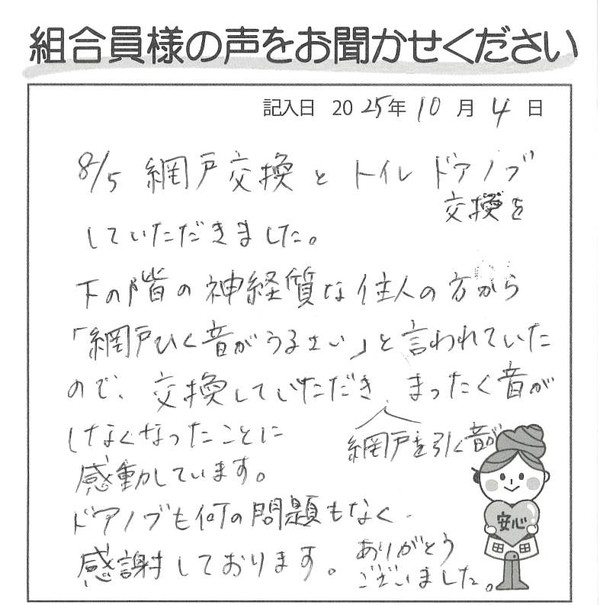 組合員様の声をお聞かせください
記入日 2025年10月4日
8/5 網戸交換とトイレドアノブ
交換を
していただきました。
下の階の神経質な住人の方から
「網戸ひく音がうるさい」と言われていた
ので、交換していただき まったく音が
網戸を引く音が
しなくなったことに
感動しています。
ドアノブも何の問題もなく、
感謝しております。ありがとう
ございました。
安心